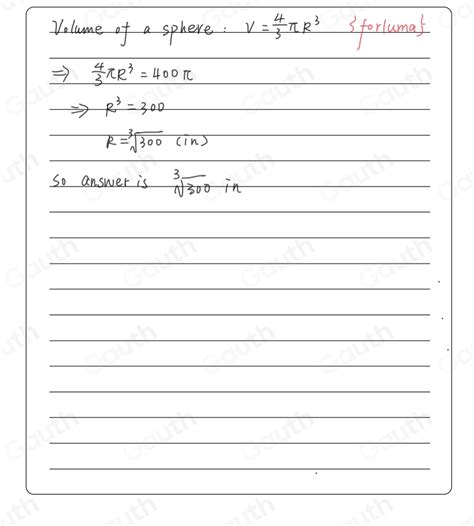 Volume of a sphere: V = 4/3 πR³ {forluma}
⇒ 4/3 πR³ = 400π
⇒ R³ = 300
R = ³√300 (in)
So answer is ³√300 in
Gauth